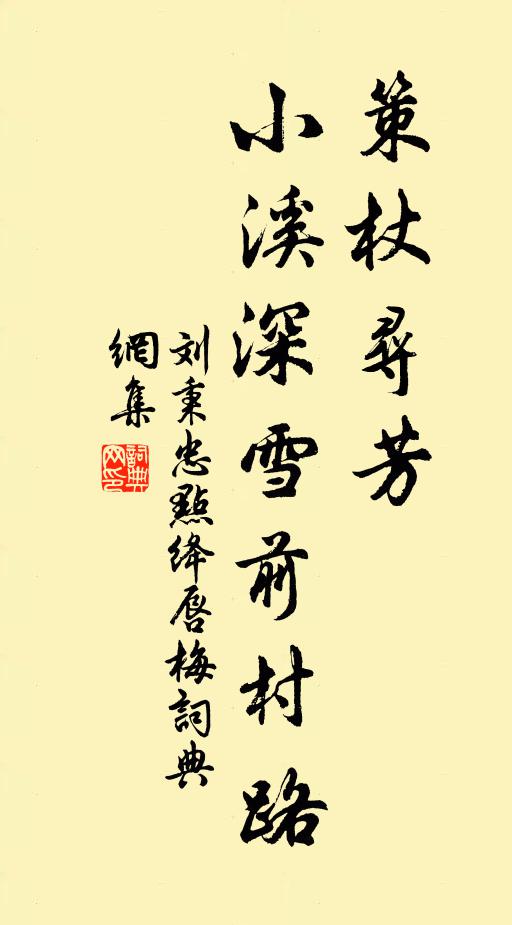 策杖尋芳
小溪深雪前村路
刘秉忠點絳唇梅詞典
網集
詞典
网印